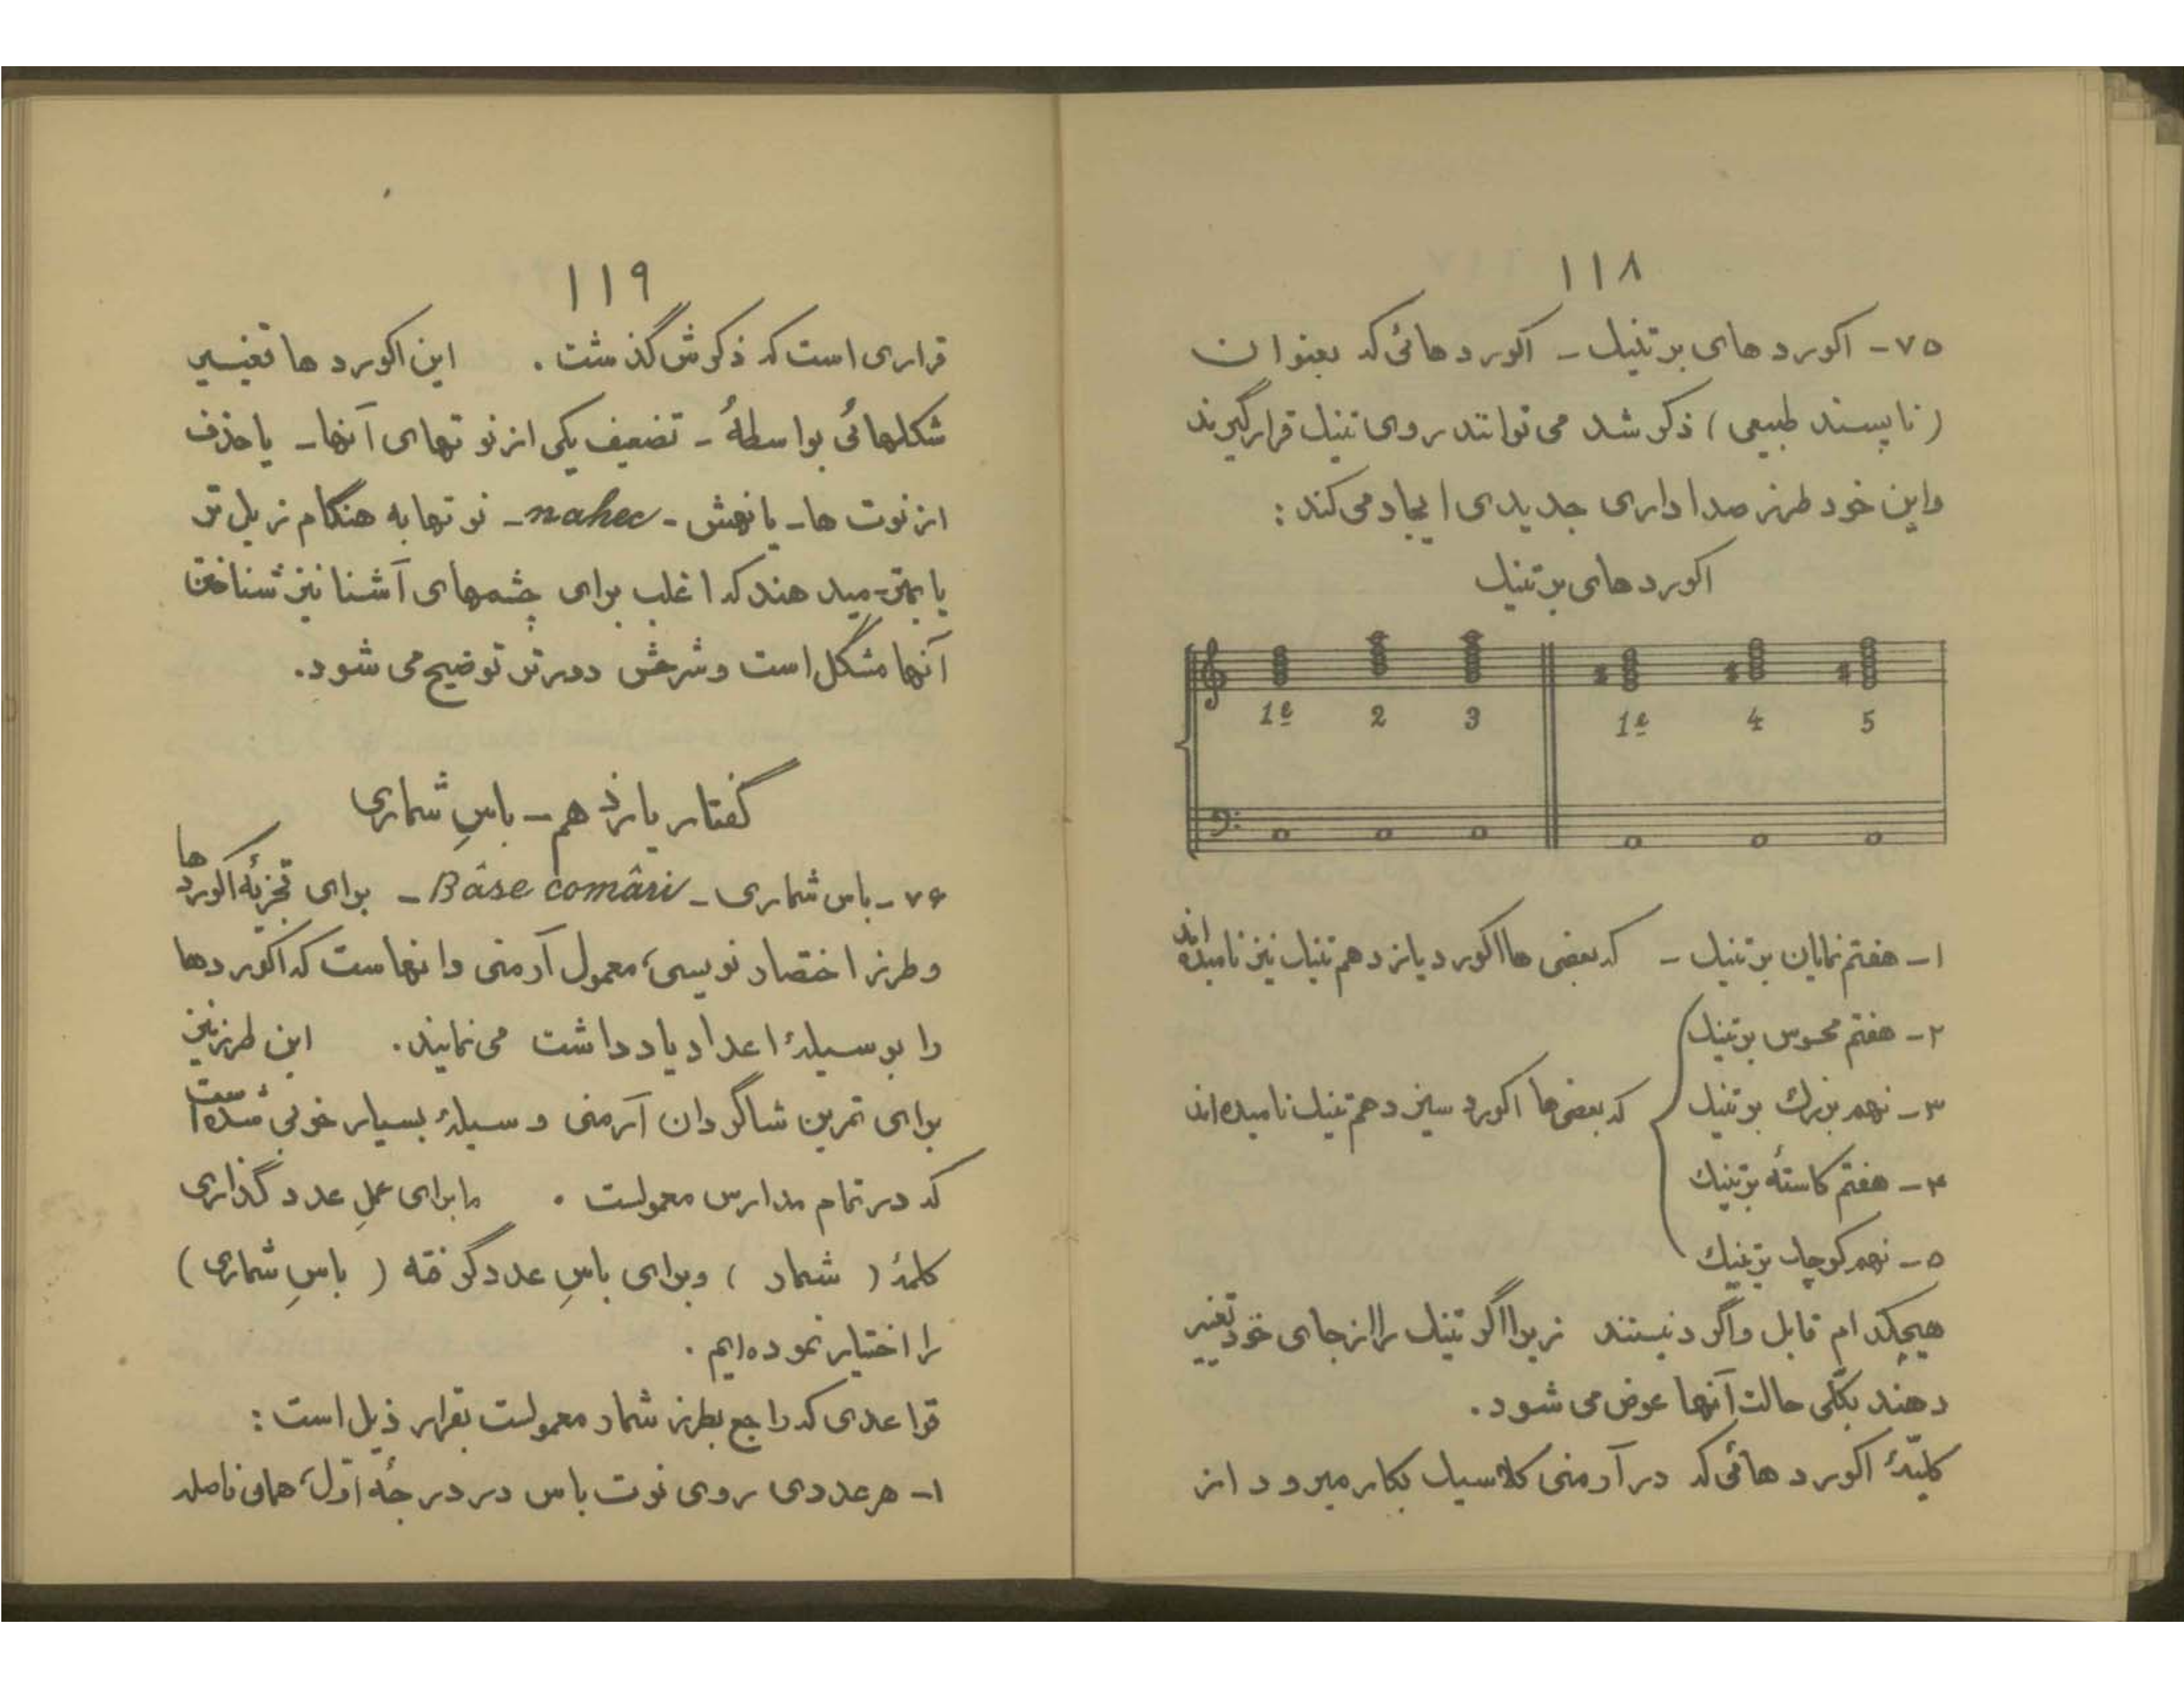 ۱۱۸
۷۵- اکورد های بر تنیک - اکورد هائی که بعنوان
( ناپسند طبیعی ) ذکر شد می توانند روی تنیک قرار گیرند
و این خود طرز صدا داری جدیدی ایجاد می کند :
اکورد های بر تنیک
1e 2 3 1e 4 5
۱- هفتم نمایان بر تنیک - که بعضی ها اکورد یازدهم تنیک نیز نامیده اند
۲- هفتم محسوس بر تنیک
۳- نهم بزرگ بر تنیک که بعضی ها اکورد سیزدهم تنیک نامیده اند
۴- هفتم کاستهٔ بر تنیک
۵- نهم کوچک بر تنیک
هیچکدام قابل واگرد نیستند زیرا اگر تنیک را از جای خود تغییر
دهند بکلّی حالت آنها عوض می شود.
کلیّهٔ اکورد هائی که در آرمنی کلاسیک بکار میرود از
۱۱۹
قراری است که ذکرش گذشت . این اکورد ها تغییر
شکلهائی بواسطهٔ - تضعیف یکی از نوتهای آنها - یا حذف
از نوت ها - یا نهش - nahec - نوتها به هنگام زیل تر
یا بمتر - میدهند که اغلب برای چشمهای آشنا نیز شناختن
آنها مشکل است و شرحش دورتر توضیح می شود.
گفتار یازدهم - باسِ شماری
۷۶- باس شماری - Bâse comâri - برای تجزیهٔ اکورد ها
و طرز اختصار نویسی، معمول آرمنی دانهاست که اکوردها
را بوسیلهٔ اعداد یادداشت می نمایند. این طرز نیز
برای تمرین شاگردان آرمنی وسیلهٔ بسیار خوبی شده است
که در تمام مدارس معمولست . ما برای عملِ عدد گذاری
کلمهٔ ( شمار ) و برای باسِ عدد گرفته ( باسِ شماری )
را اختیار نموده ایم .
قواعدی که راجع بطرز شمار معمولست بقرار ذیل است :
۱- هر عددی روی نوت باس در درجهٔ اوّل، همان فاصله